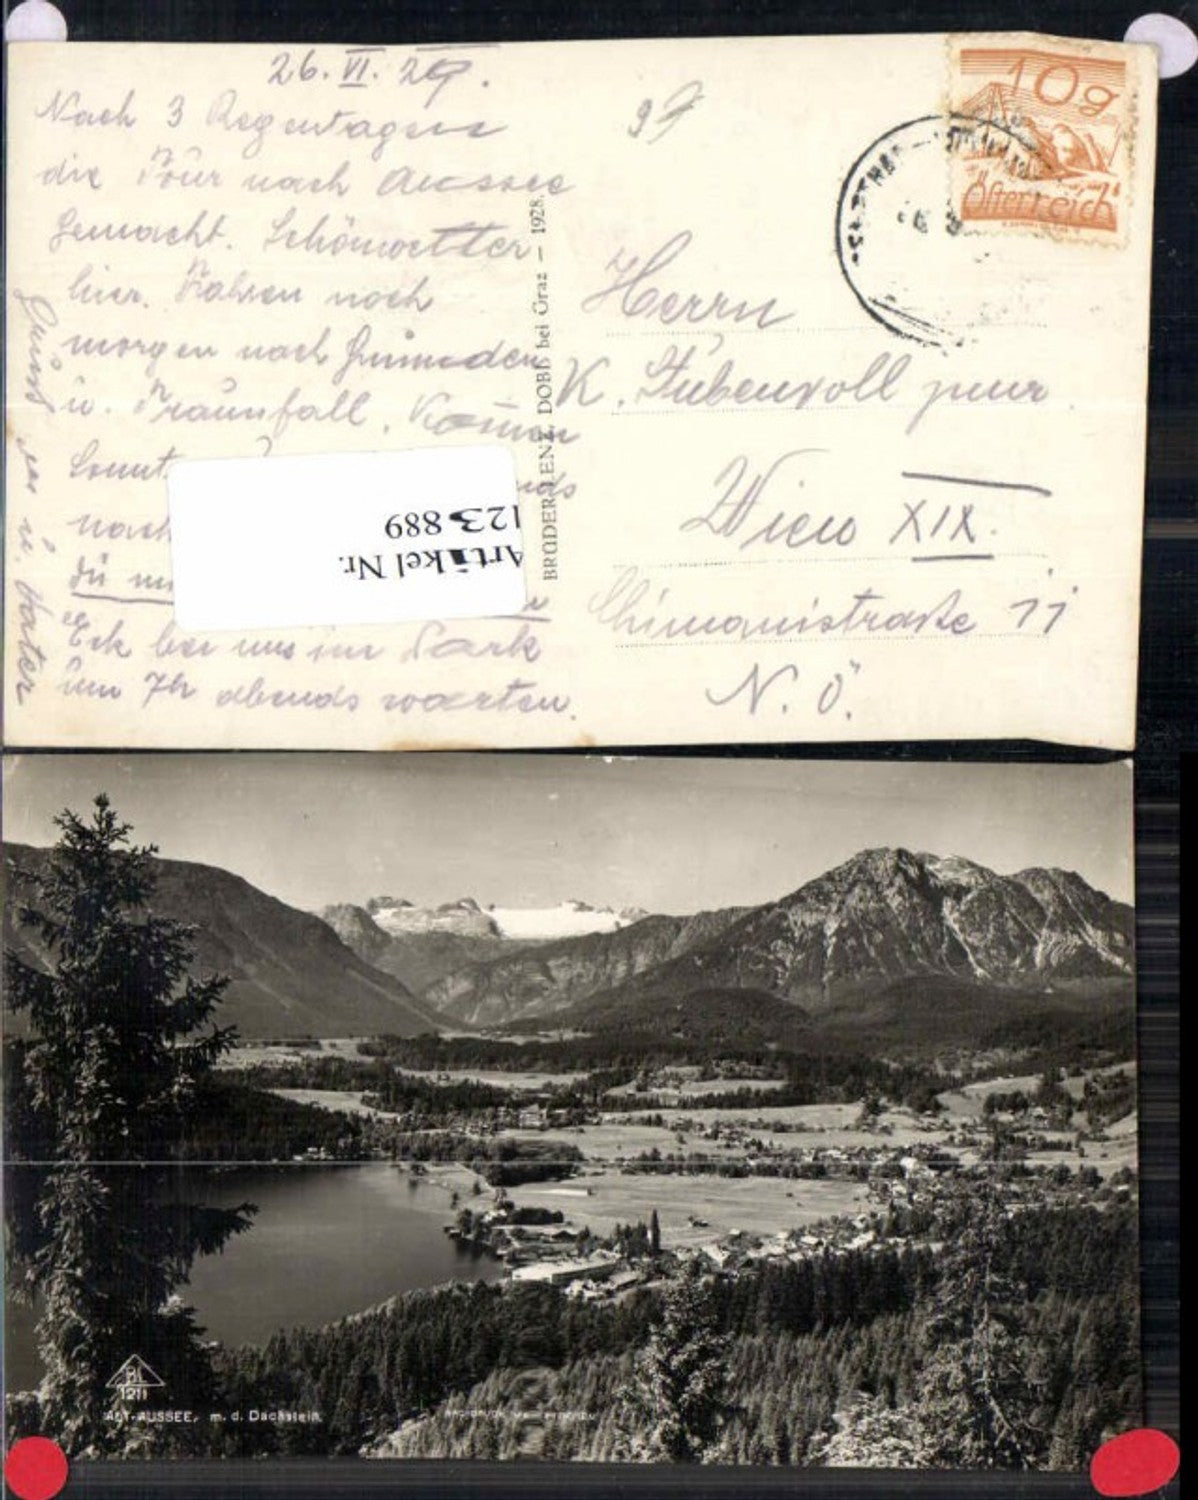 26. VI. 29.
Nach 3 Regentagen
die Tour nach Aussee
gemacht. Schönwetter
hier. Fahren noch
morgen nach Gmunden
u. Traunfall. Komm
Sonnt
nds
nach
du
Eck bei uns im Park
um 7h abends warten.
Gruß
u. Vater
BRÜDER LENZ, DOBL bei Graz — 1928.
Artikel Nr.
123 889
10g
Österreich
Herrn
K. Stubenvoll jun
Wien XIX.
Chimanistraße 11
N. Ö.
1211
ALT-AUSSEE, m. d. Dachstein.